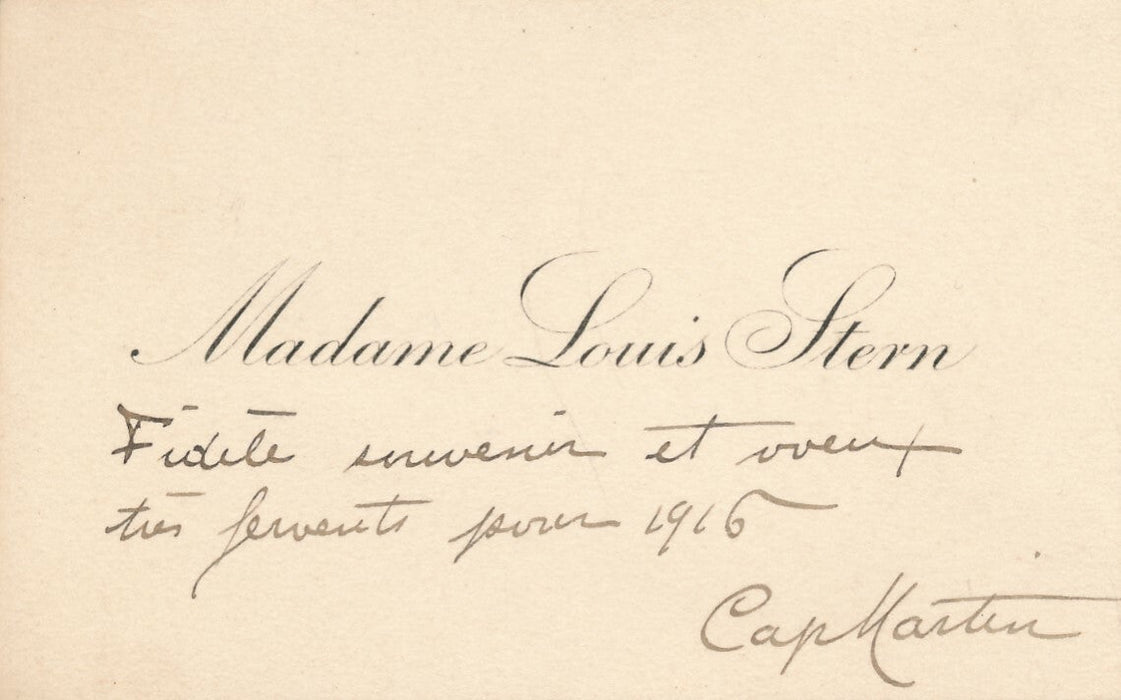 Madame Louis Stern
Fidèle souvenir et voeux
très fervents pour 1916
Cap Martin